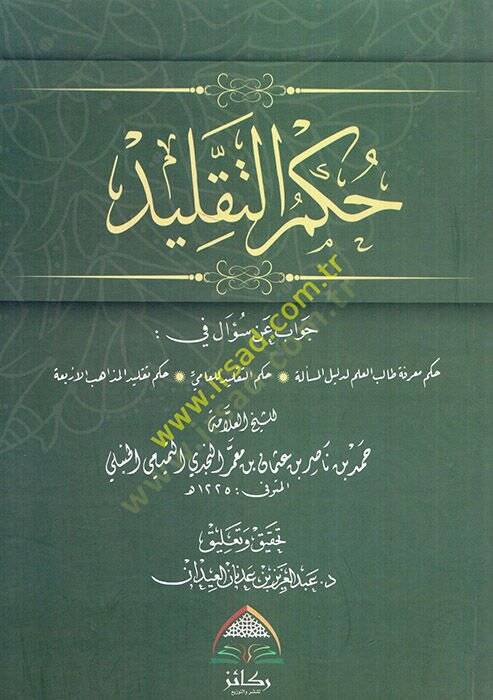 حُكْمُ التَّقْلِيد
جَوَابٌ عَنْ سُؤَالٍ فِي :
حكم معرفة طالب العلم لدليل المسألة * حكم التقليد للعامي * حكم تقليد المذاهب الأربعة
للشيخ العلّامة
حمد بن ناصر بن عثمان بن معمر النجدي التميمي الحنبلي
المتوفى : ١٢٢٥ هـ
تحقيق وتعليق
د. عبد العزيز بن عدنان العيدان
ركائز
للنشر والتوزيع
www.irsad.com.tr